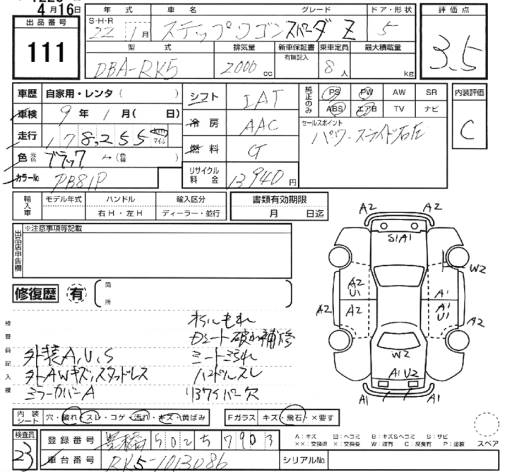 4月16日
出品番号
111
S・H・R 年式 車名 グレード ドア・形状
22 1月 ステップワゴン スパーダ Z 5
型式 排気量 新車保証書 有無記入 乗車定員 最大積載量
DBA-RK5 2000cc 8人 kg
評価点
3.5
車歴 自家用・レンタ( )
車検 9年 1月( 日)
走行 178,255 マイル
色 ブラック
カラーNo PB81P
シフト IAT
冷房 AAC
燃料 G
リサイクル料金 13,940円
純正のみ PS PW AW SR
ABS エアB TV ナビ
セールスポイント
パワースライド左右
内装評価
C
輸入車 モデル年式 ハンドル 輸入区分
年 右H・左H ディーラー・並行
書類有効期限
月 日迄
※注意事項等記載
修復歴 有
箇所
オイルもれ
シート破れ補修
外装A,U,S シート汚れ
外AWキズ,スタッドレス ハンドルスレ
ミラーカバーA
A2 A2
S1A1
W2
A2 U1 A1 A1 U1 A2
W2
A1 U2
A1 A1
内装シート 穴・破れ・スレ・コゲ・汚れ・キズ・黄ばみ Fガラス キズ・飛石・×要す
検査員
23
登録番号 豊橋 502 5 7903
車台番号 RK5-1013086
シリアルNo
A:キズ U:ヘコミ B:キズ&ヘコミ S:サビ
××:交換済 ×:要交換 W:波有 C:腐食有 P:塗装
スペア